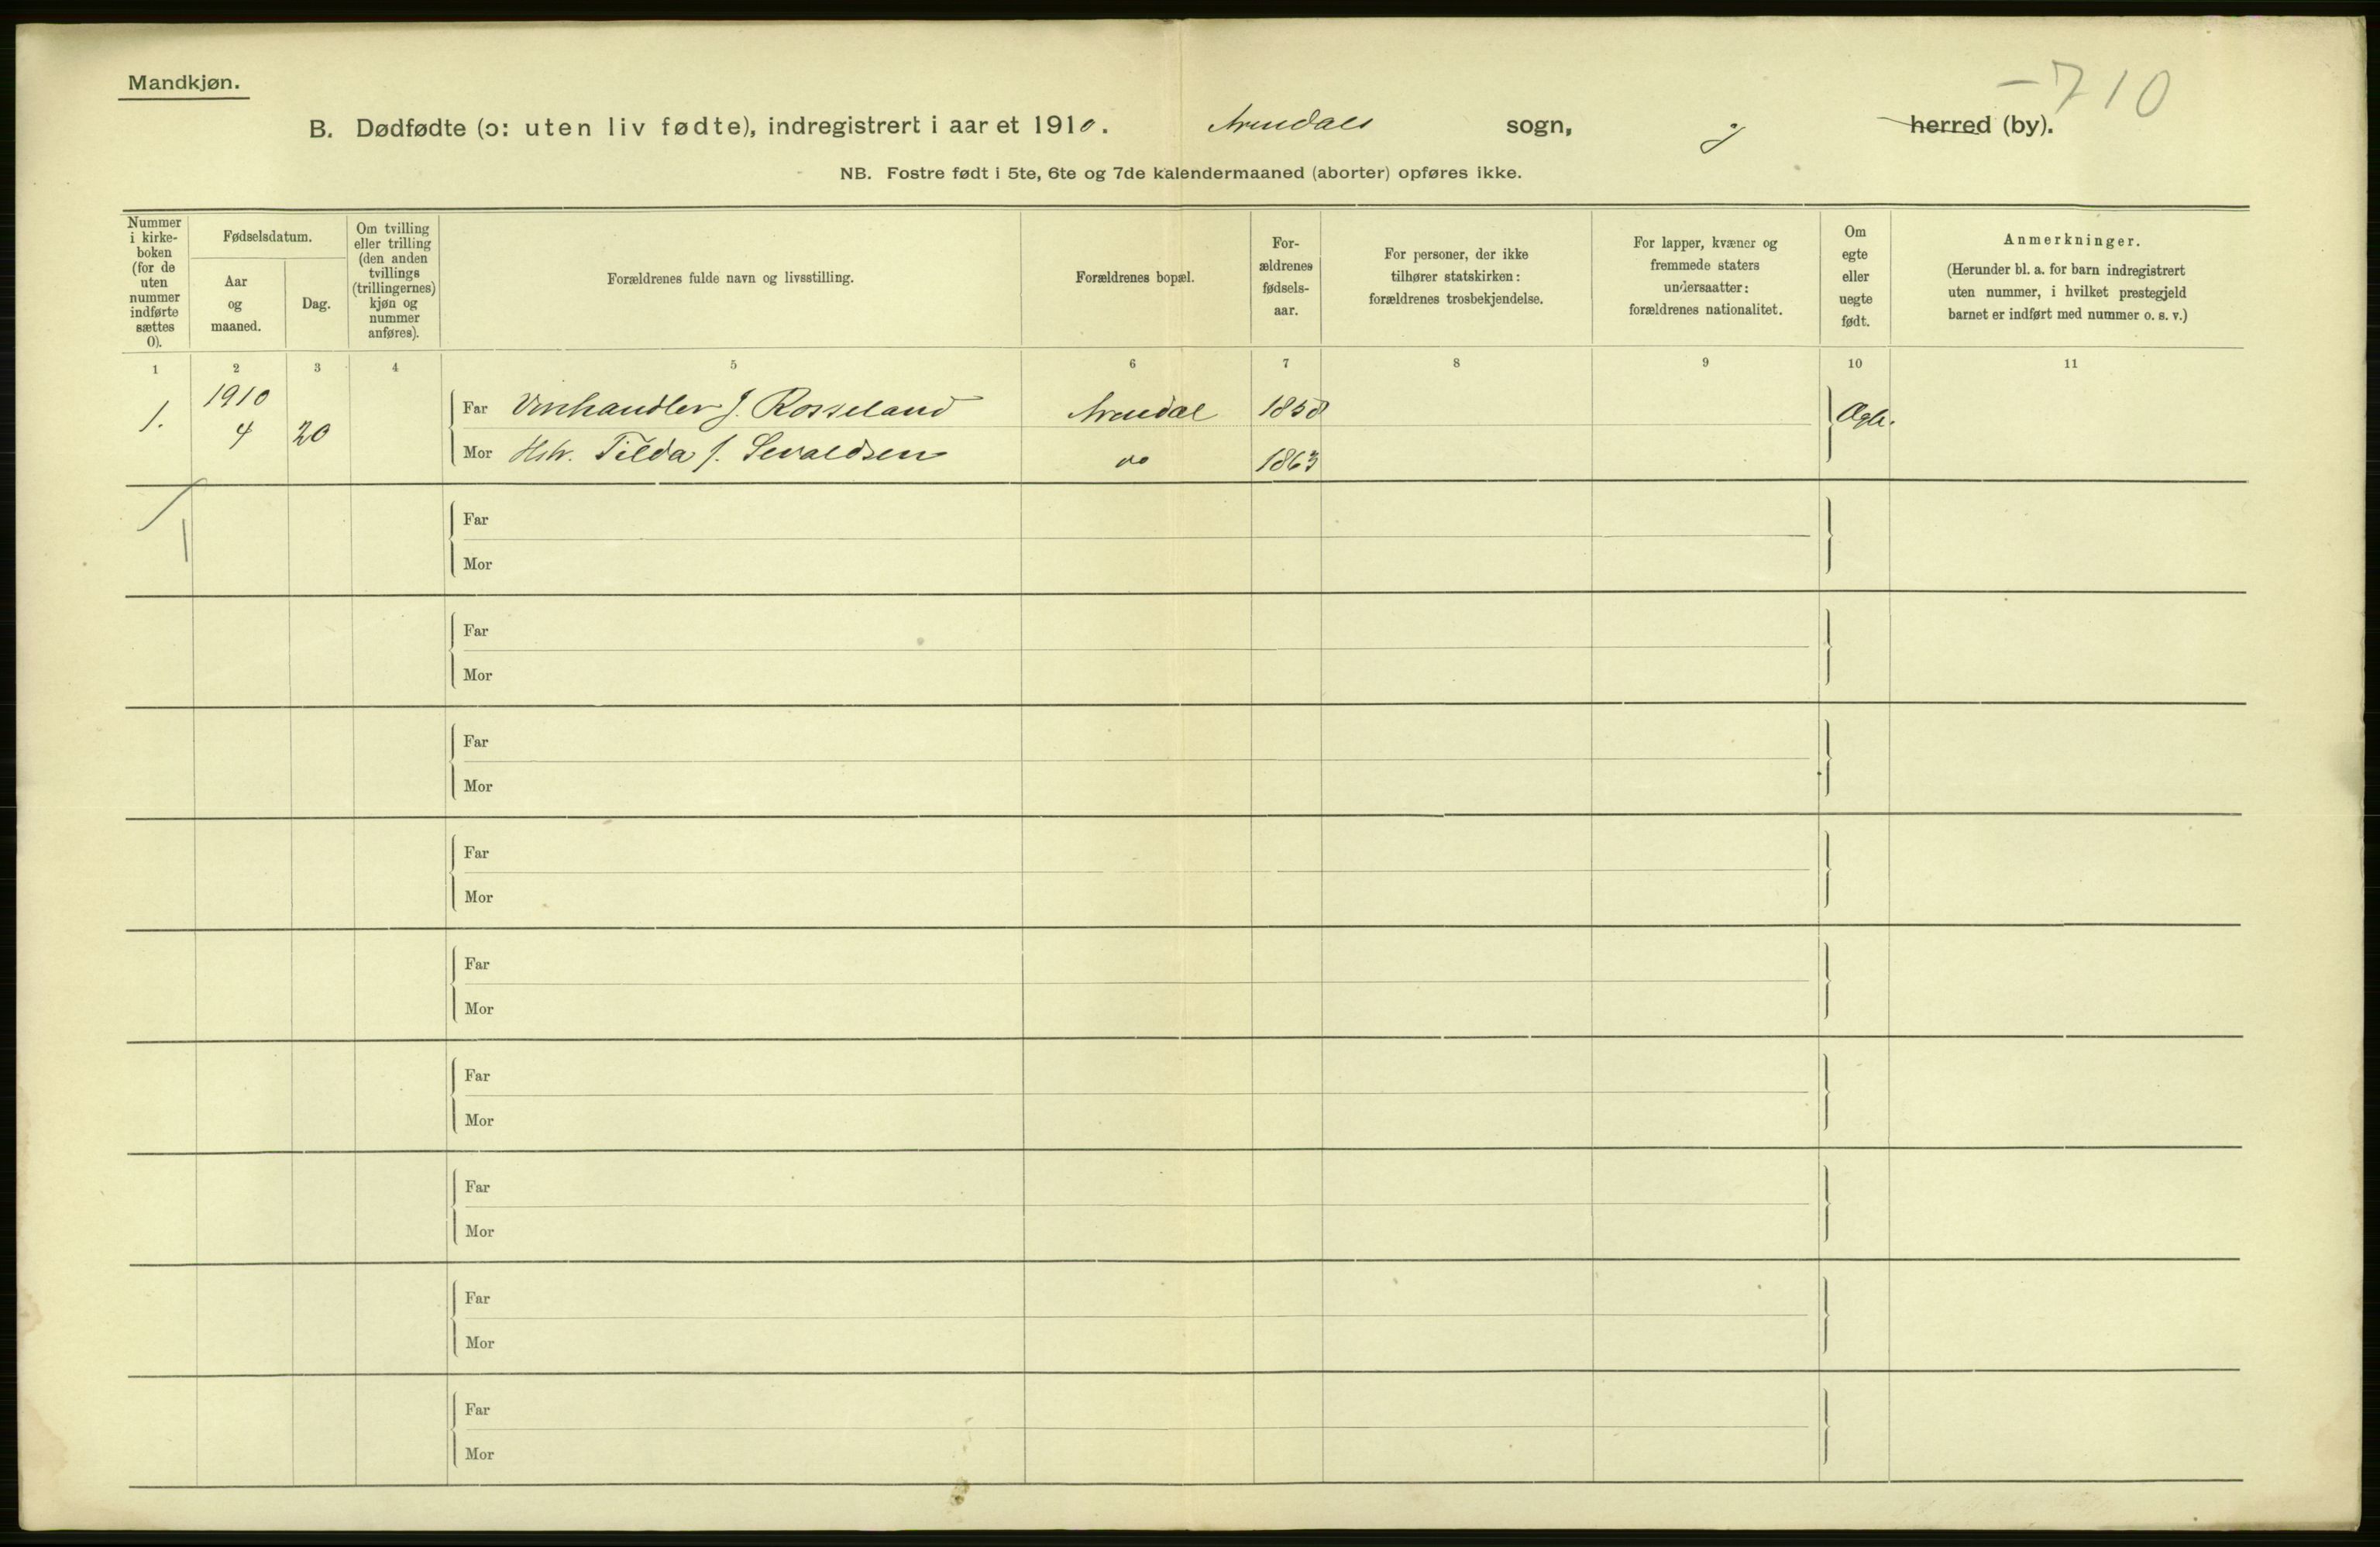 Mandkjøn.
-710
B. Dødfødte (ɔ: uten liv fødte), indregistrert i aaret 1910. Arendals sogn, herred (by).
NB. Fostre født i 5te, 6te og 7de kalendermaaned (aborter) opføres ikke.
Nummer
i kirke-
boken
(for de
uten
nummer
indførte
sættes
0).
Fødselsdatum.
Aar
og
maaned.
Dag.
Om tvilling
eller trilling
(den anden
tvillings
(trillingernes)
kjøn og
nummer
anføres).
Forældrenes fulde navn og livsstilling.
Forældrenes bopæl.
For-
ældrenes
fødsels-
aar.
For personer, der ikke
tilhører statskirken:
forældrenes trosbekjendelse.
For lapper, kvæner og
fremmede staters
undersaatter:
forældrenes nationalitet.
Om
egte
eller
uegte
født.
Anmerkninger.
(Herunder bl. a. for barn indregistrert
uten nummer, i hvilket prestegjeld
barnet er indført med nummer o. s. v.)
1 2 3 4 5 6 7 8 9 10 11
1910
1. 4 20 Far Vinhandler J. Rosseland Arendal 1858 Ægte.
Mor Hstr. Tilda f. Sevaldsen do 1863
Far
Mor
Far
Mor
Far
Mor
Far
Mor
Far
Mor
Far
Mor
Far
Mor
Far
Mor
Far
Mor